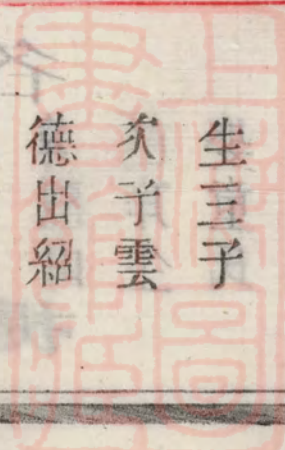 生三子
次子雲
德出紹